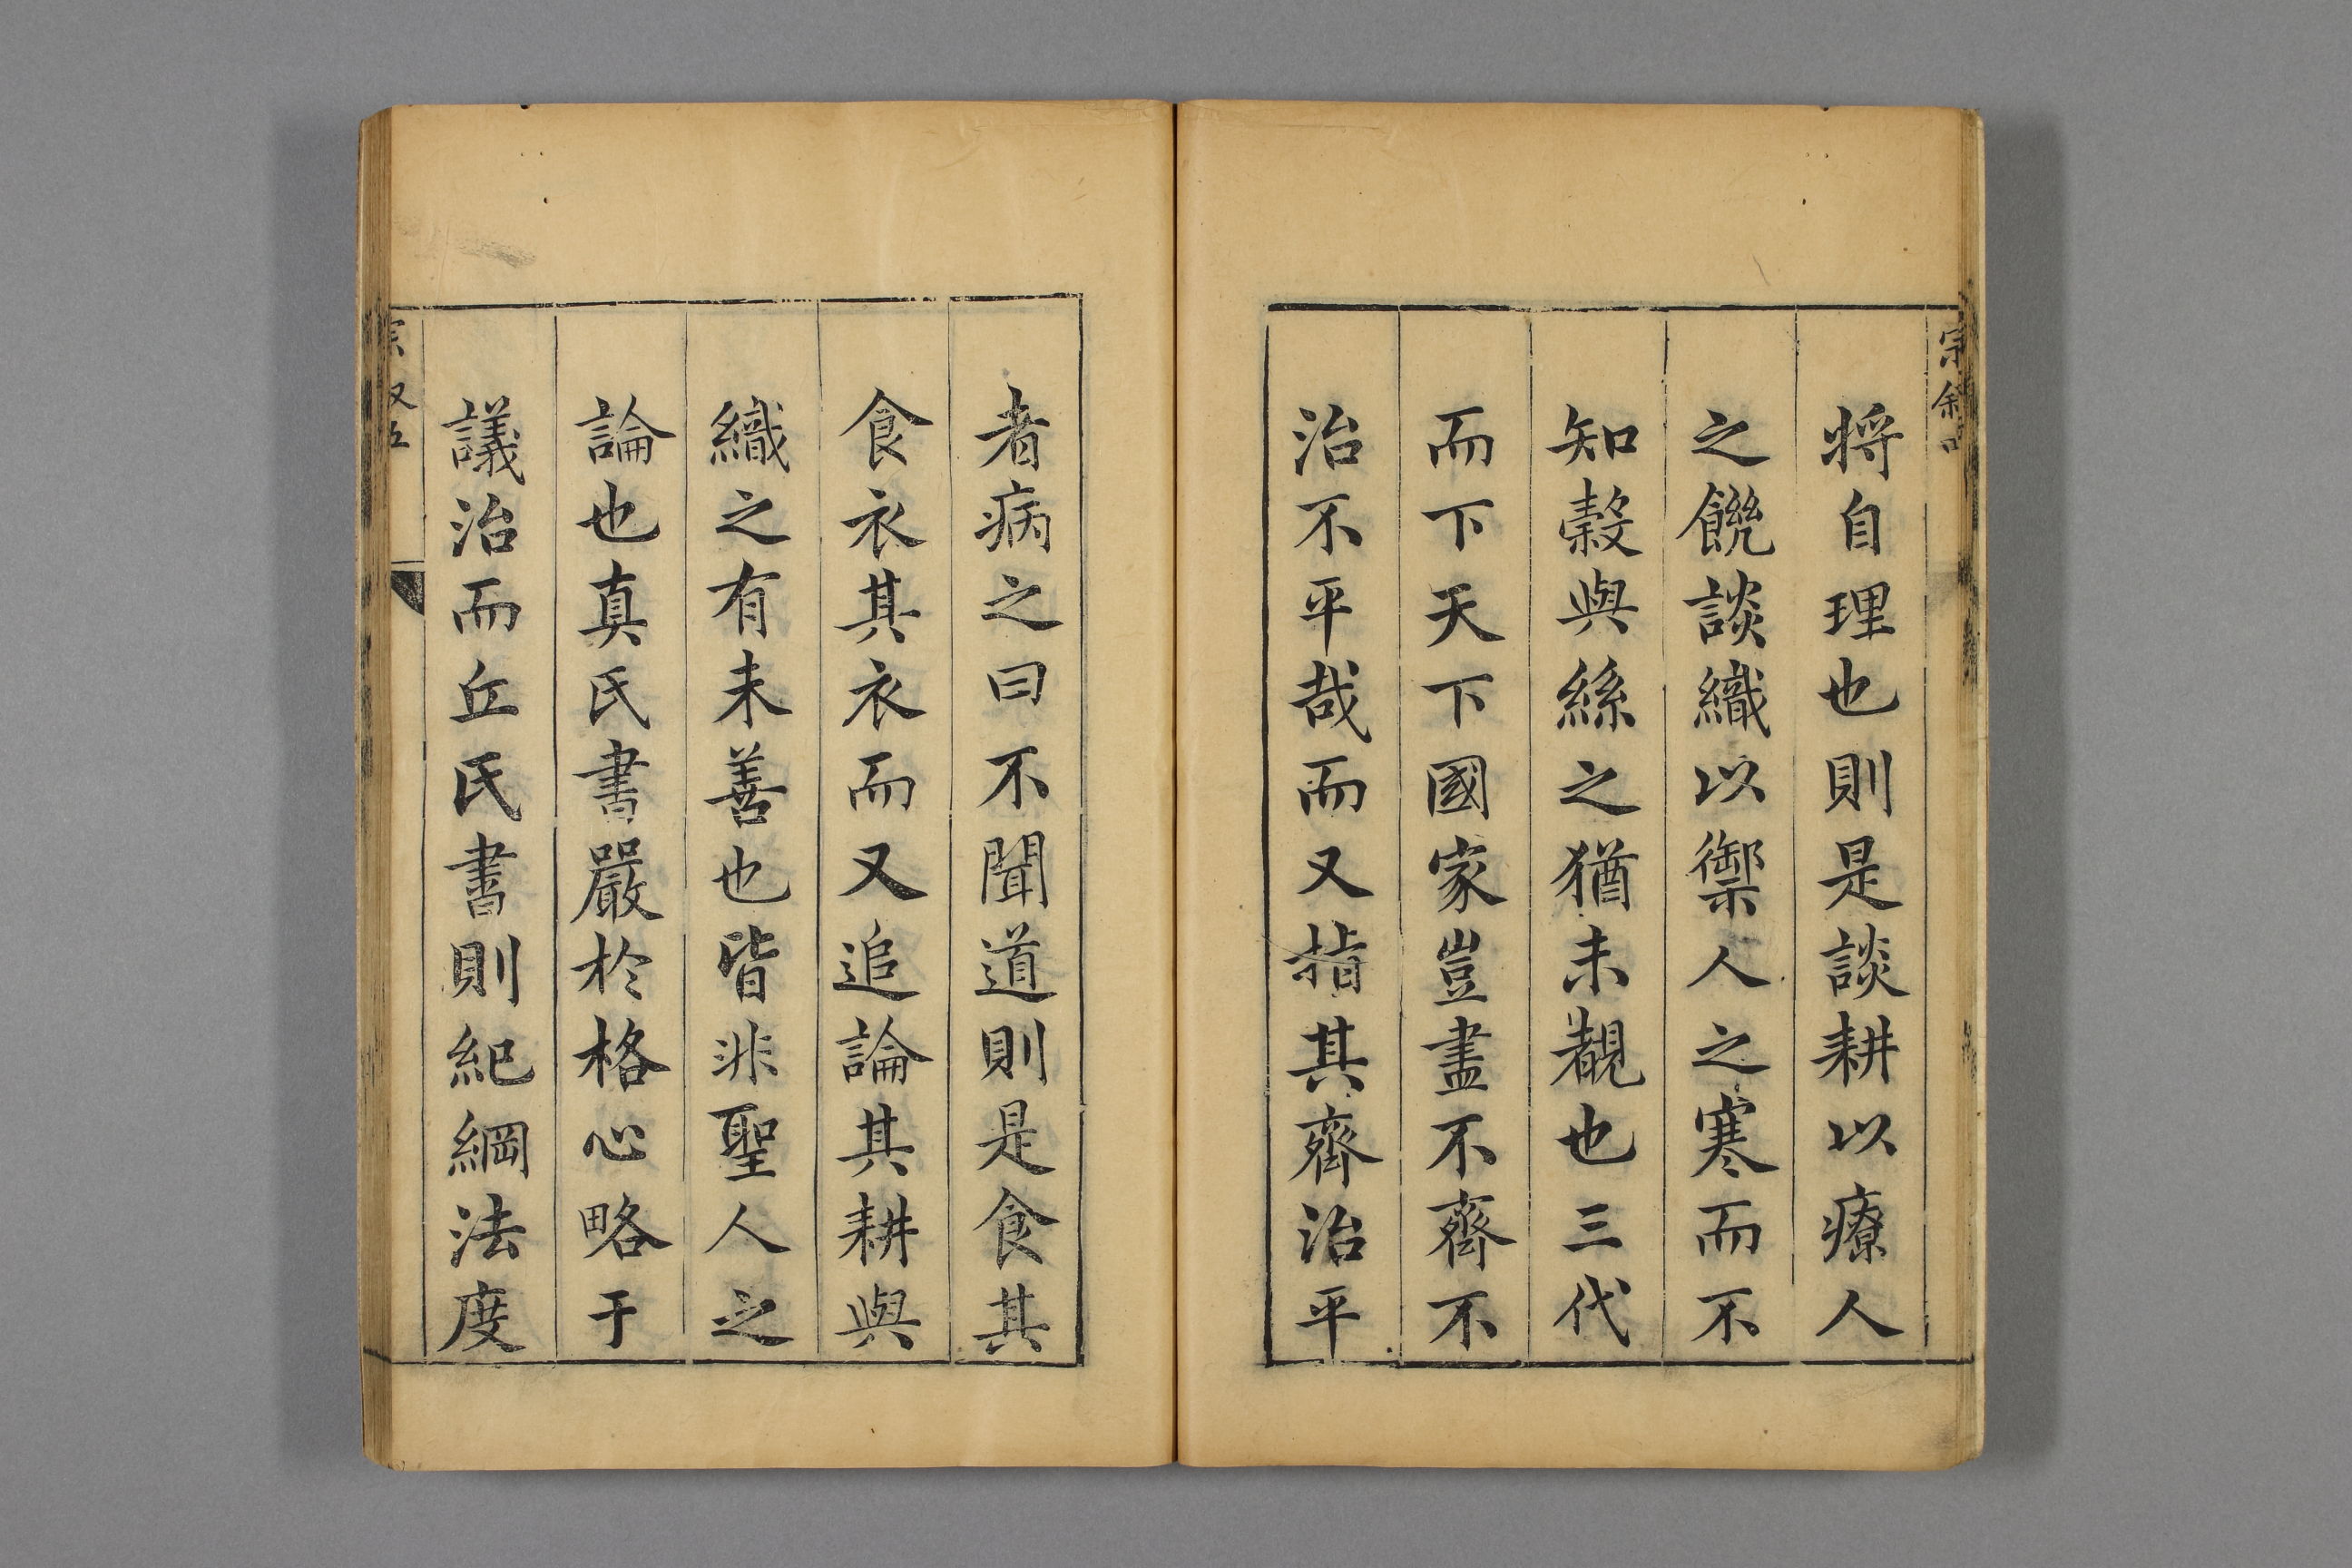 宗叙四
將自理也則是談耕以療人
之饑談織以禦人之寒而不
知穀與絲之猶未覩也三代
而下天下國家豈盡不齊不
治不平哉而又指其齊治平
者病之曰不聞道則是食其
食衣其衣而又追論其耕與
織之有未善也皆非聖人之
論也真氏書嚴於格心略于
議治而丘氏書則紀綱法度